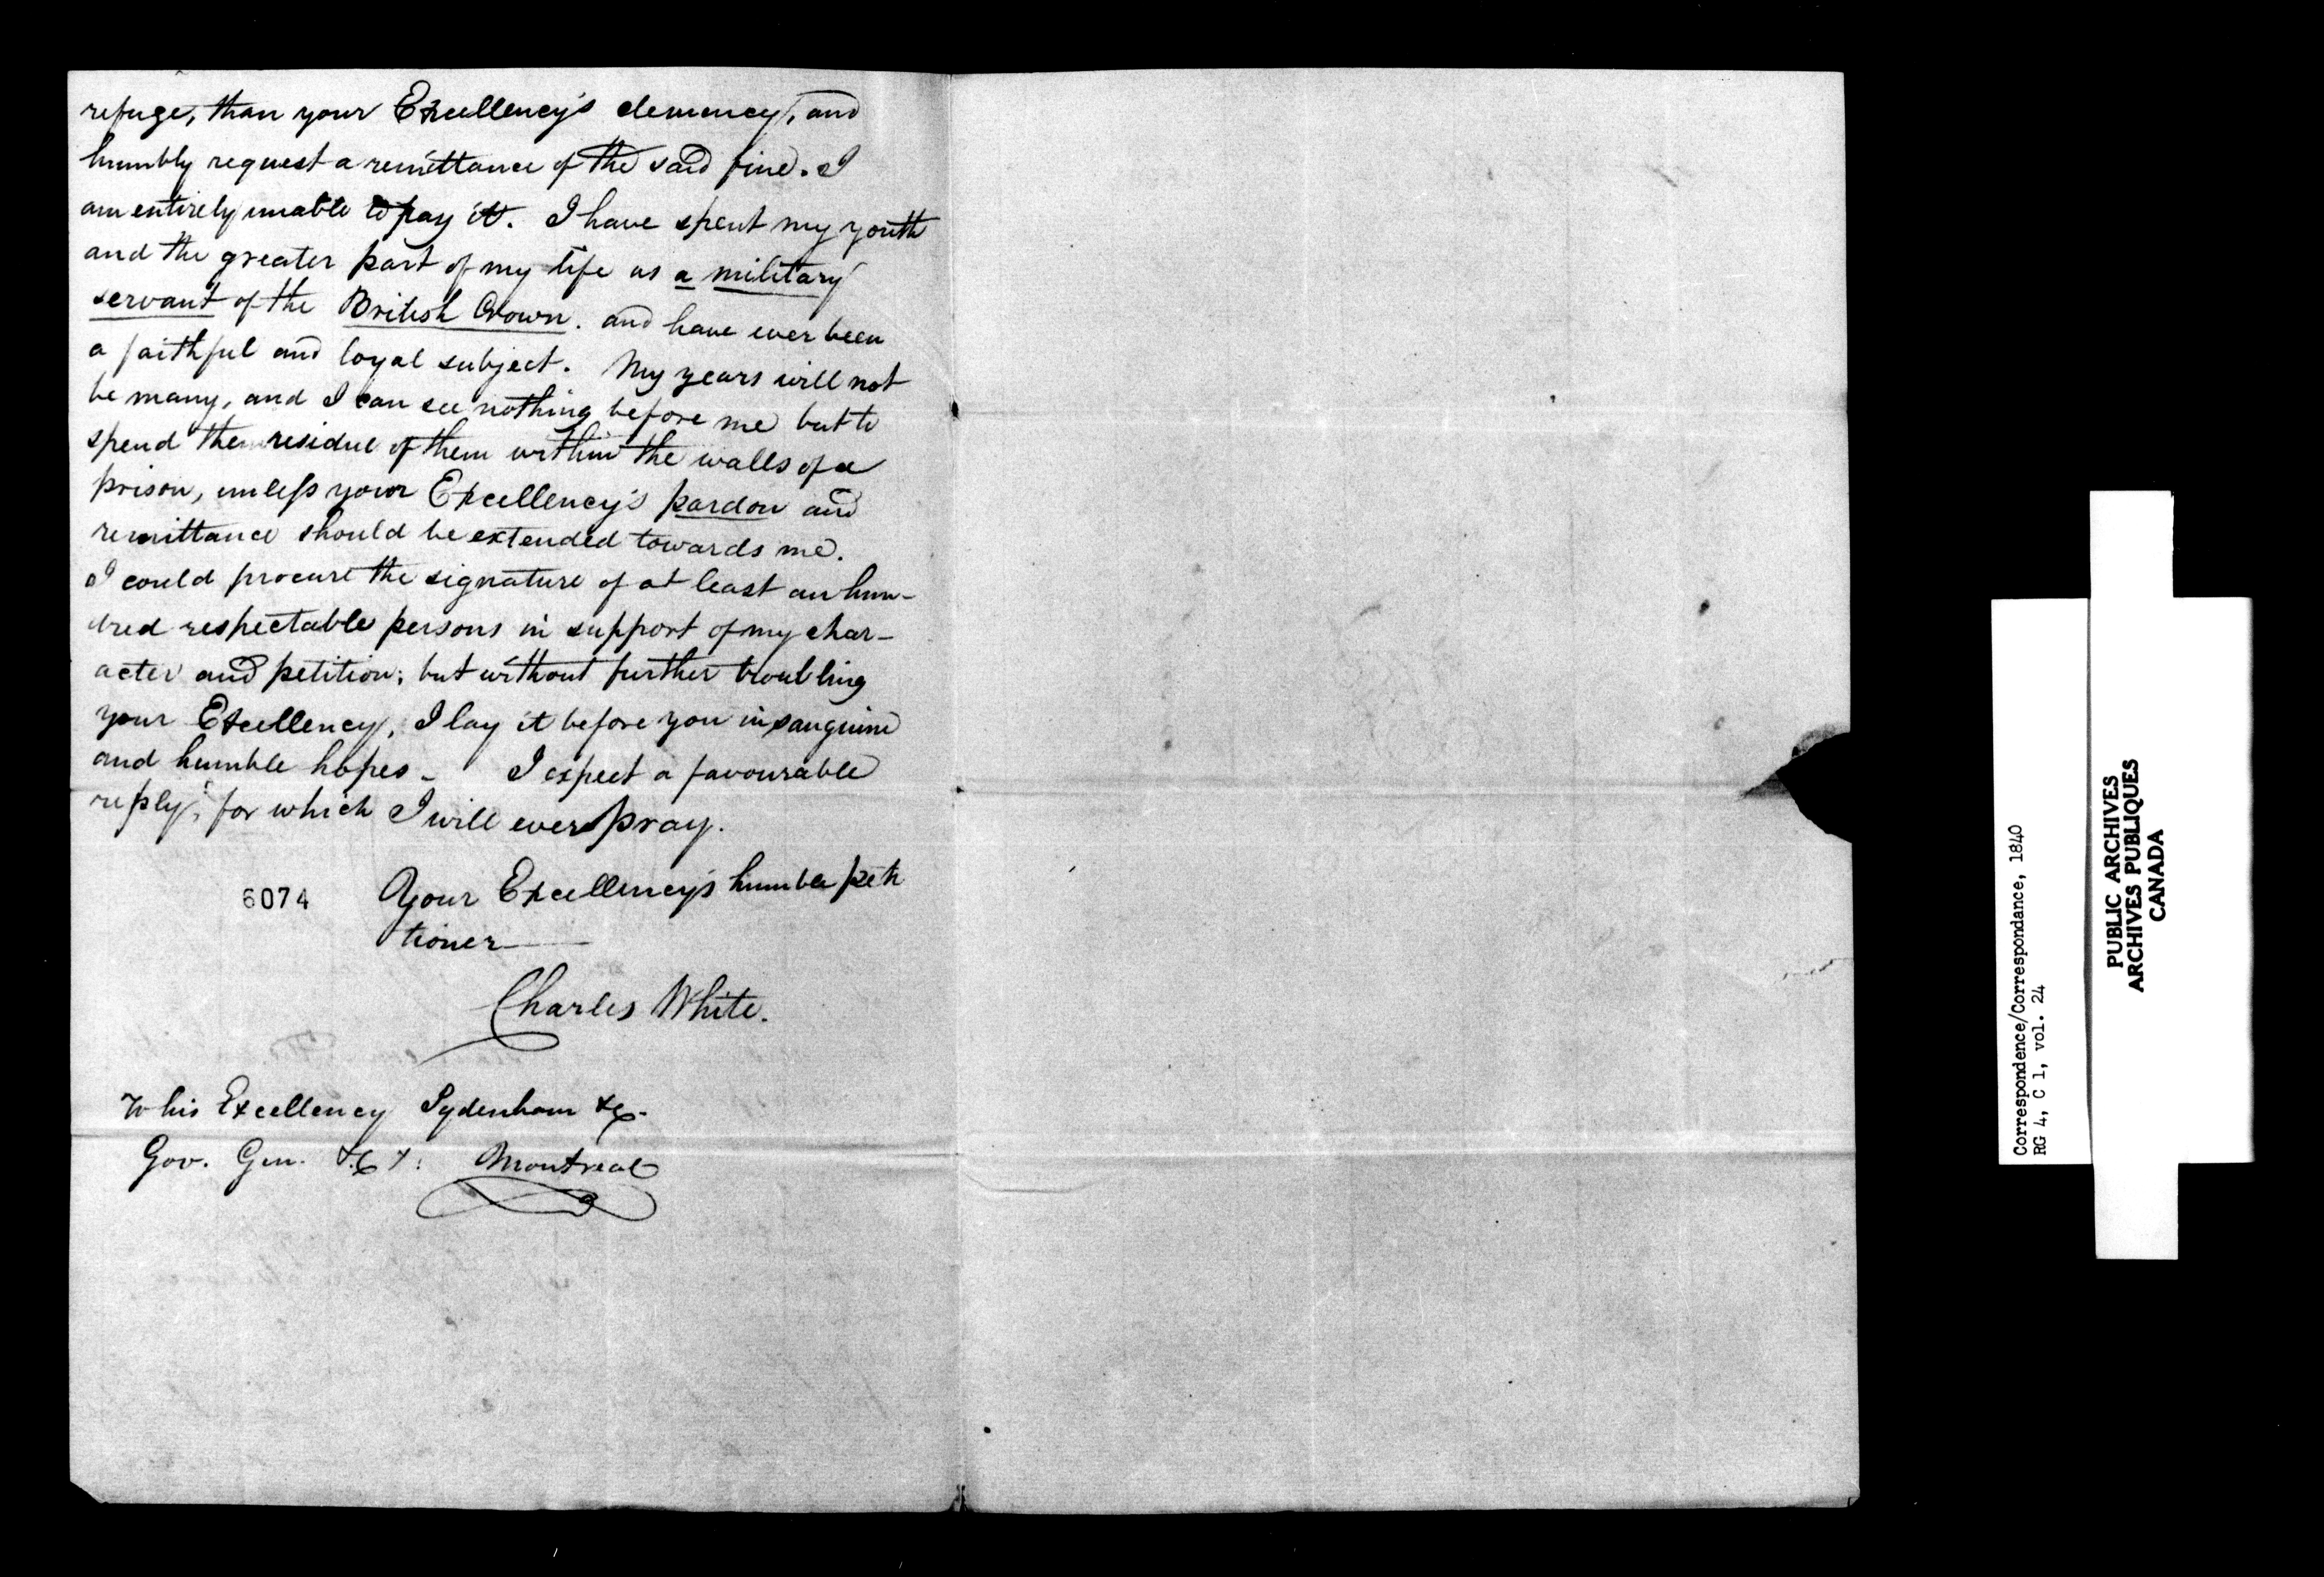 refuge, than your Excellency's clemency, and
humbly request a remittance of the said fine. I
am entirely unable to pay it. I have spent my youth
and the greater part of my life as a military
servant of the British Crown. and have ever been
a faithful and loyal subject. My years will not
be many, and I can see nothing before me but to
spend the residue of them within the walls of a
prison, unless your Excellency's pardon and
remittance should be extended towards me.
I could procure the signature of at least an hun-
dred respectable persons in support of my char-
acter and petition; but without further troubling
your Excellency, I lay it before you in sanguine
and humble hopes - I expect a favourable
reply, for which I will ever pray.
6074 Your Excellency's humble peti
tioner
Charles White.
To his Excellency Sydenham &c.
Gov. Gen. &c &: Montreal
Correspondence/Correspondance, 1840
RG 4, C 1, vol. 24
PUBLIC ARCHIVES
ARCHIVES PUBLIQUES
CANADA